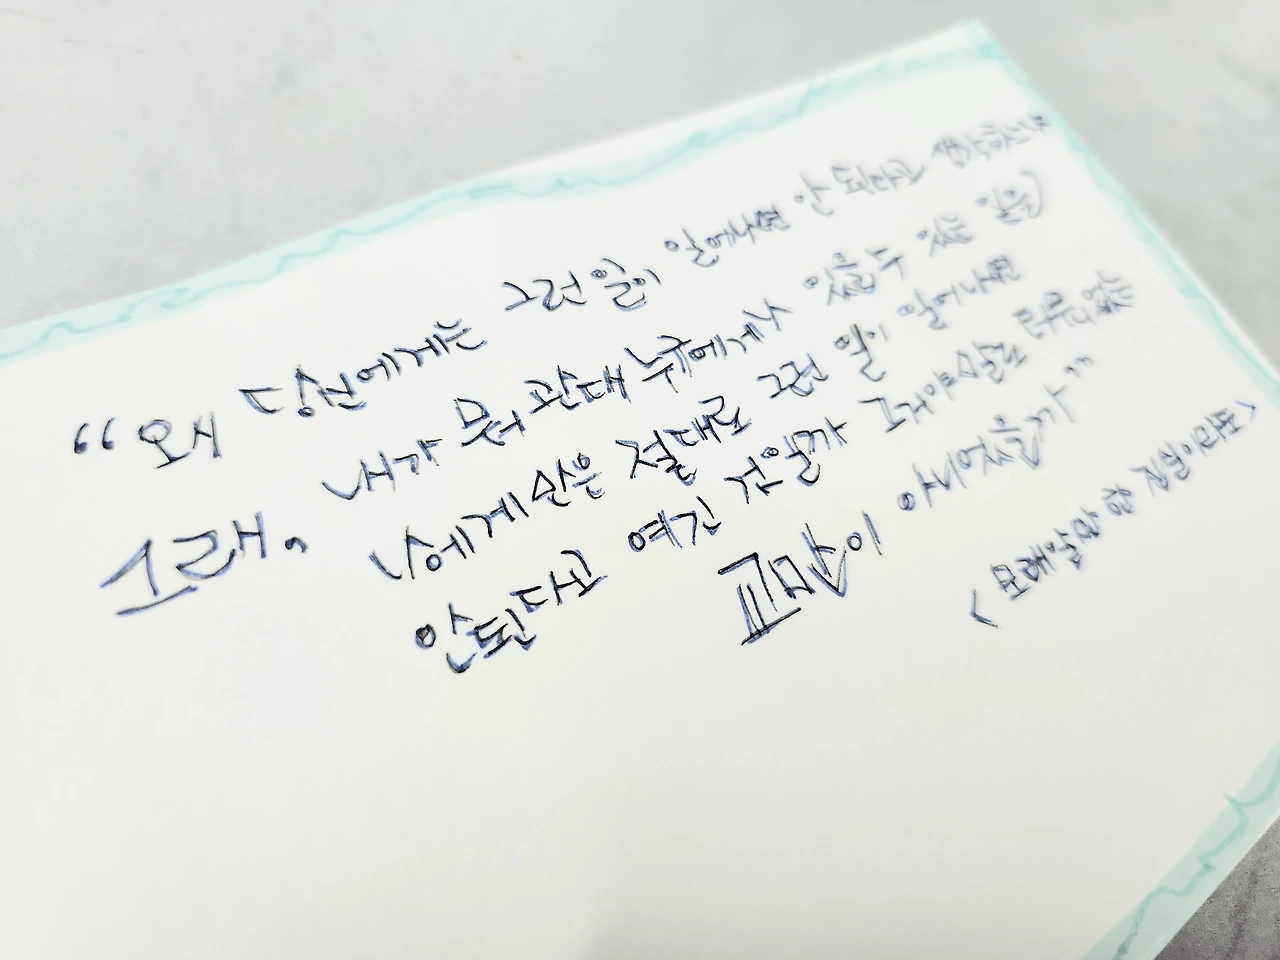 “왜 당신에게는 그런 일이 일어나면 안 된다고 생각하나
그래. 내가 뭐 관대 누구에게나 있을 수 있는 일이
나에게 만은 절대로 그런 일이 일어나면
안된다고 여긴 건일까 그거야말로 터무니없는
교만이 아니었을까”
〈모래알만 한 진실이라도〉